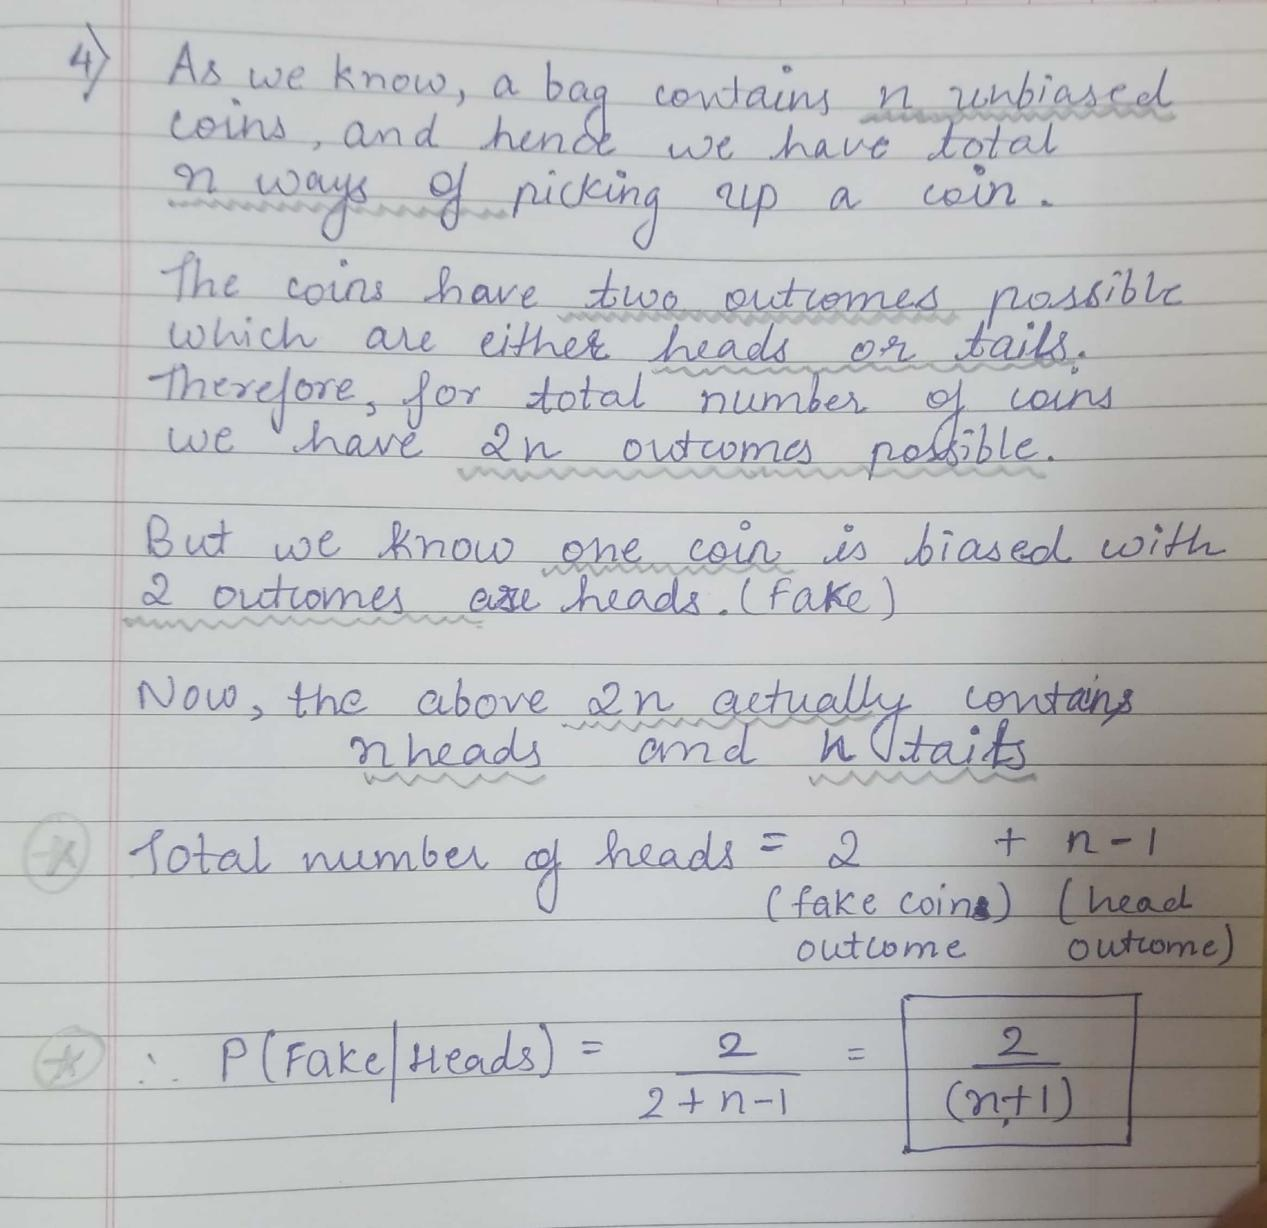 4) As we know, a bag contains n unbiased
coins, and hence we have total
n ways of picking up a coin.
The coins have two outcomes possible
which are either heads or tails.
Therefore, for total number of coins
we have 2n outcomes possible.
But we know one coin is biased with
2 outcomes are heads. (fake)
Now, the above 2n actually contains
n heads and n tails
* Total number of heads = 2 + n-1
(fake coin) (head
outcome outcome)
* ∴ P(Fake|Heads) = 2/(2+n-1) = 2/(n+1)